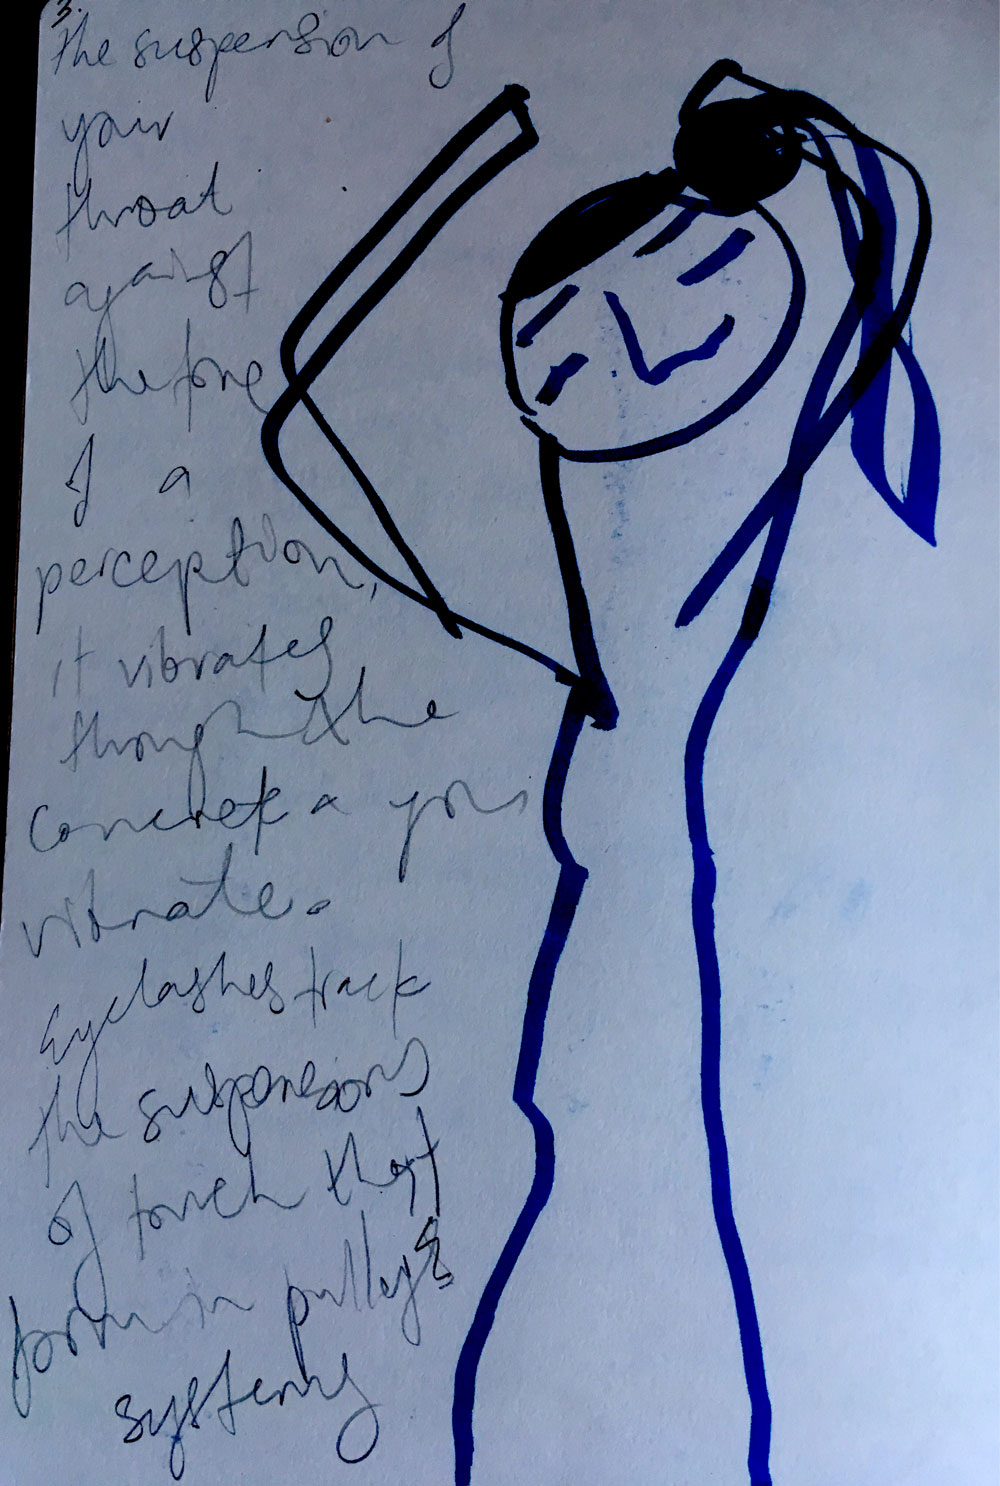 3.
The suspension of
your
throat
against
the fore
of a
perception,
it vibrates
through the
concrete a you
vibrate.
Eyelashes track
the suspensions
of touch that
form in pulleys
systems